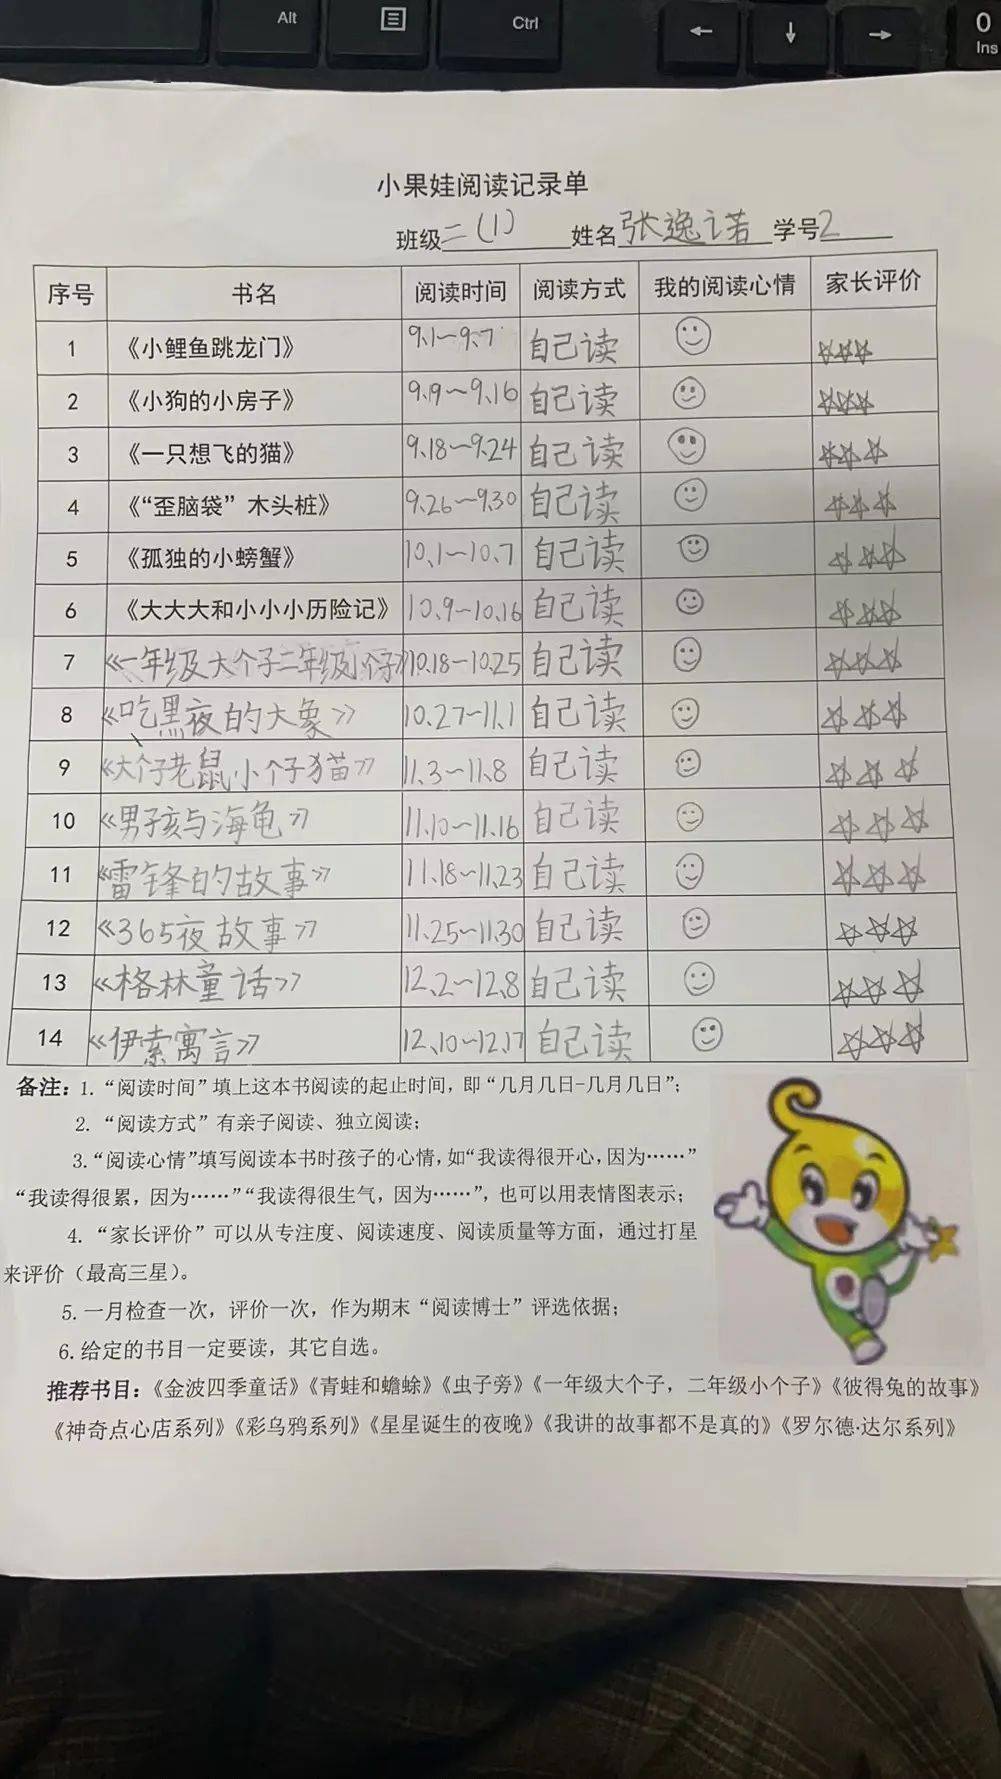 Alt
Ctrl
←
↓
→
0
Ins
小果娃阅读记录单
班级二(1) 姓名张逸诺 学号2
序号 书名 阅读时间 阅读方式 我的阅读心情 家长评价
1 《小鲤鱼跳龙门》 9.1~9.7 自己读 ☆☆☆
2 《小狗的小房子》 9.9~9.16 自己读 ☆☆☆
3 《一只想飞的猫》 9.18~9.24 自己读 ☆☆☆
4 《“歪脑袋”木头桩》 9.26~9.30 自己读 ☆☆☆
5 《孤独的小螃蟹》 10.1~10.7 自己读 ☆☆☆
6 《大大大和小小小历险记》 10.9~10.16 自己读 ☆☆☆
7 《一年级大个子二年级小个子》 10.18~10.25 自己读 ☆☆☆
8 《吃黑夜的大象》 10.27~11.1 自己读 ☆☆☆
9 《大个子老鼠小个子猫》 11.3~11.8 自己读 ☆☆☆
10 《男孩与海龟》 11.10~11.16 自己读 ☆☆☆
11 《雷锋的故事》 11.18~11.23 自己读 ☆☆☆
12 《365夜故事》 11.25~11.30 自己读 ☆☆☆
13 《格林童话》 12.2~12.8 自己读 ☆☆☆
14 《伊索寓言》 12.10~12.17 自己读 ☆☆☆
备注：1.“阅读时间”填上这本书阅读的起止时间，即“几月几日-几月几日”；
2.“阅读方式”有亲子阅读、独立阅读；
3.“阅读心情”填写阅读本书时孩子的心情，如“我读得很开心，因为……”
“我读得很累，因为……”“我读得很生气，因为……”，也可以用表情图表示；
4.“家长评价”可以从专注度、阅读速度、阅读质量等方面，通过打星
来评价（最高三星）。
5.一月检查一次，评价一次，作为期末“阅读博士”评选依据；
6.给定的书目一定要读，其它自选。
推荐书目：《金波四季童话》《青蛙和蟾蜍》《虫子旁》《一年级大个子，二年级小个子》《彼得兔的故事》
《神奇点心店系列》《彩乌鸦系列》《星星诞生的夜晚》《我讲的故事都不是真的》《罗尔德·达尔系列》